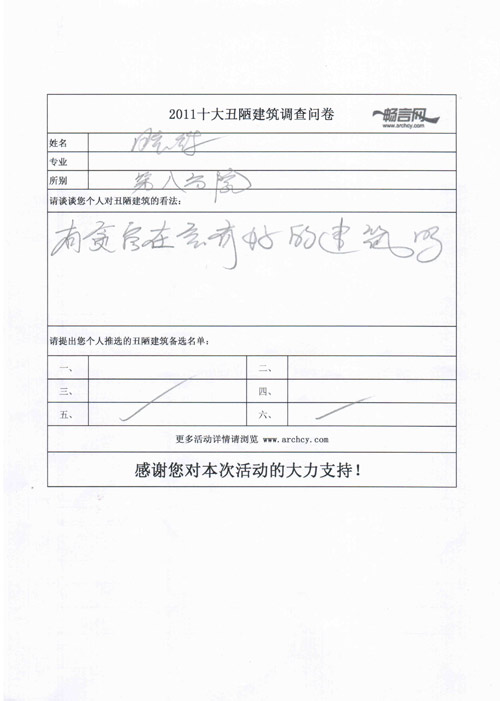 2011十大丑陋建筑调查问卷
畅言网
www.archcy.com
姓名
专业
所别 第八
请谈谈您个人对丑陋建筑的看法:
有贪官在会有好的建筑吗
请提出您个人推选的丑陋建筑备选名单:
一、 二、
三、 四、
五、 六、
更多活动详情请浏览 www.archcy.com
感谢您对本次活动的大力支持!